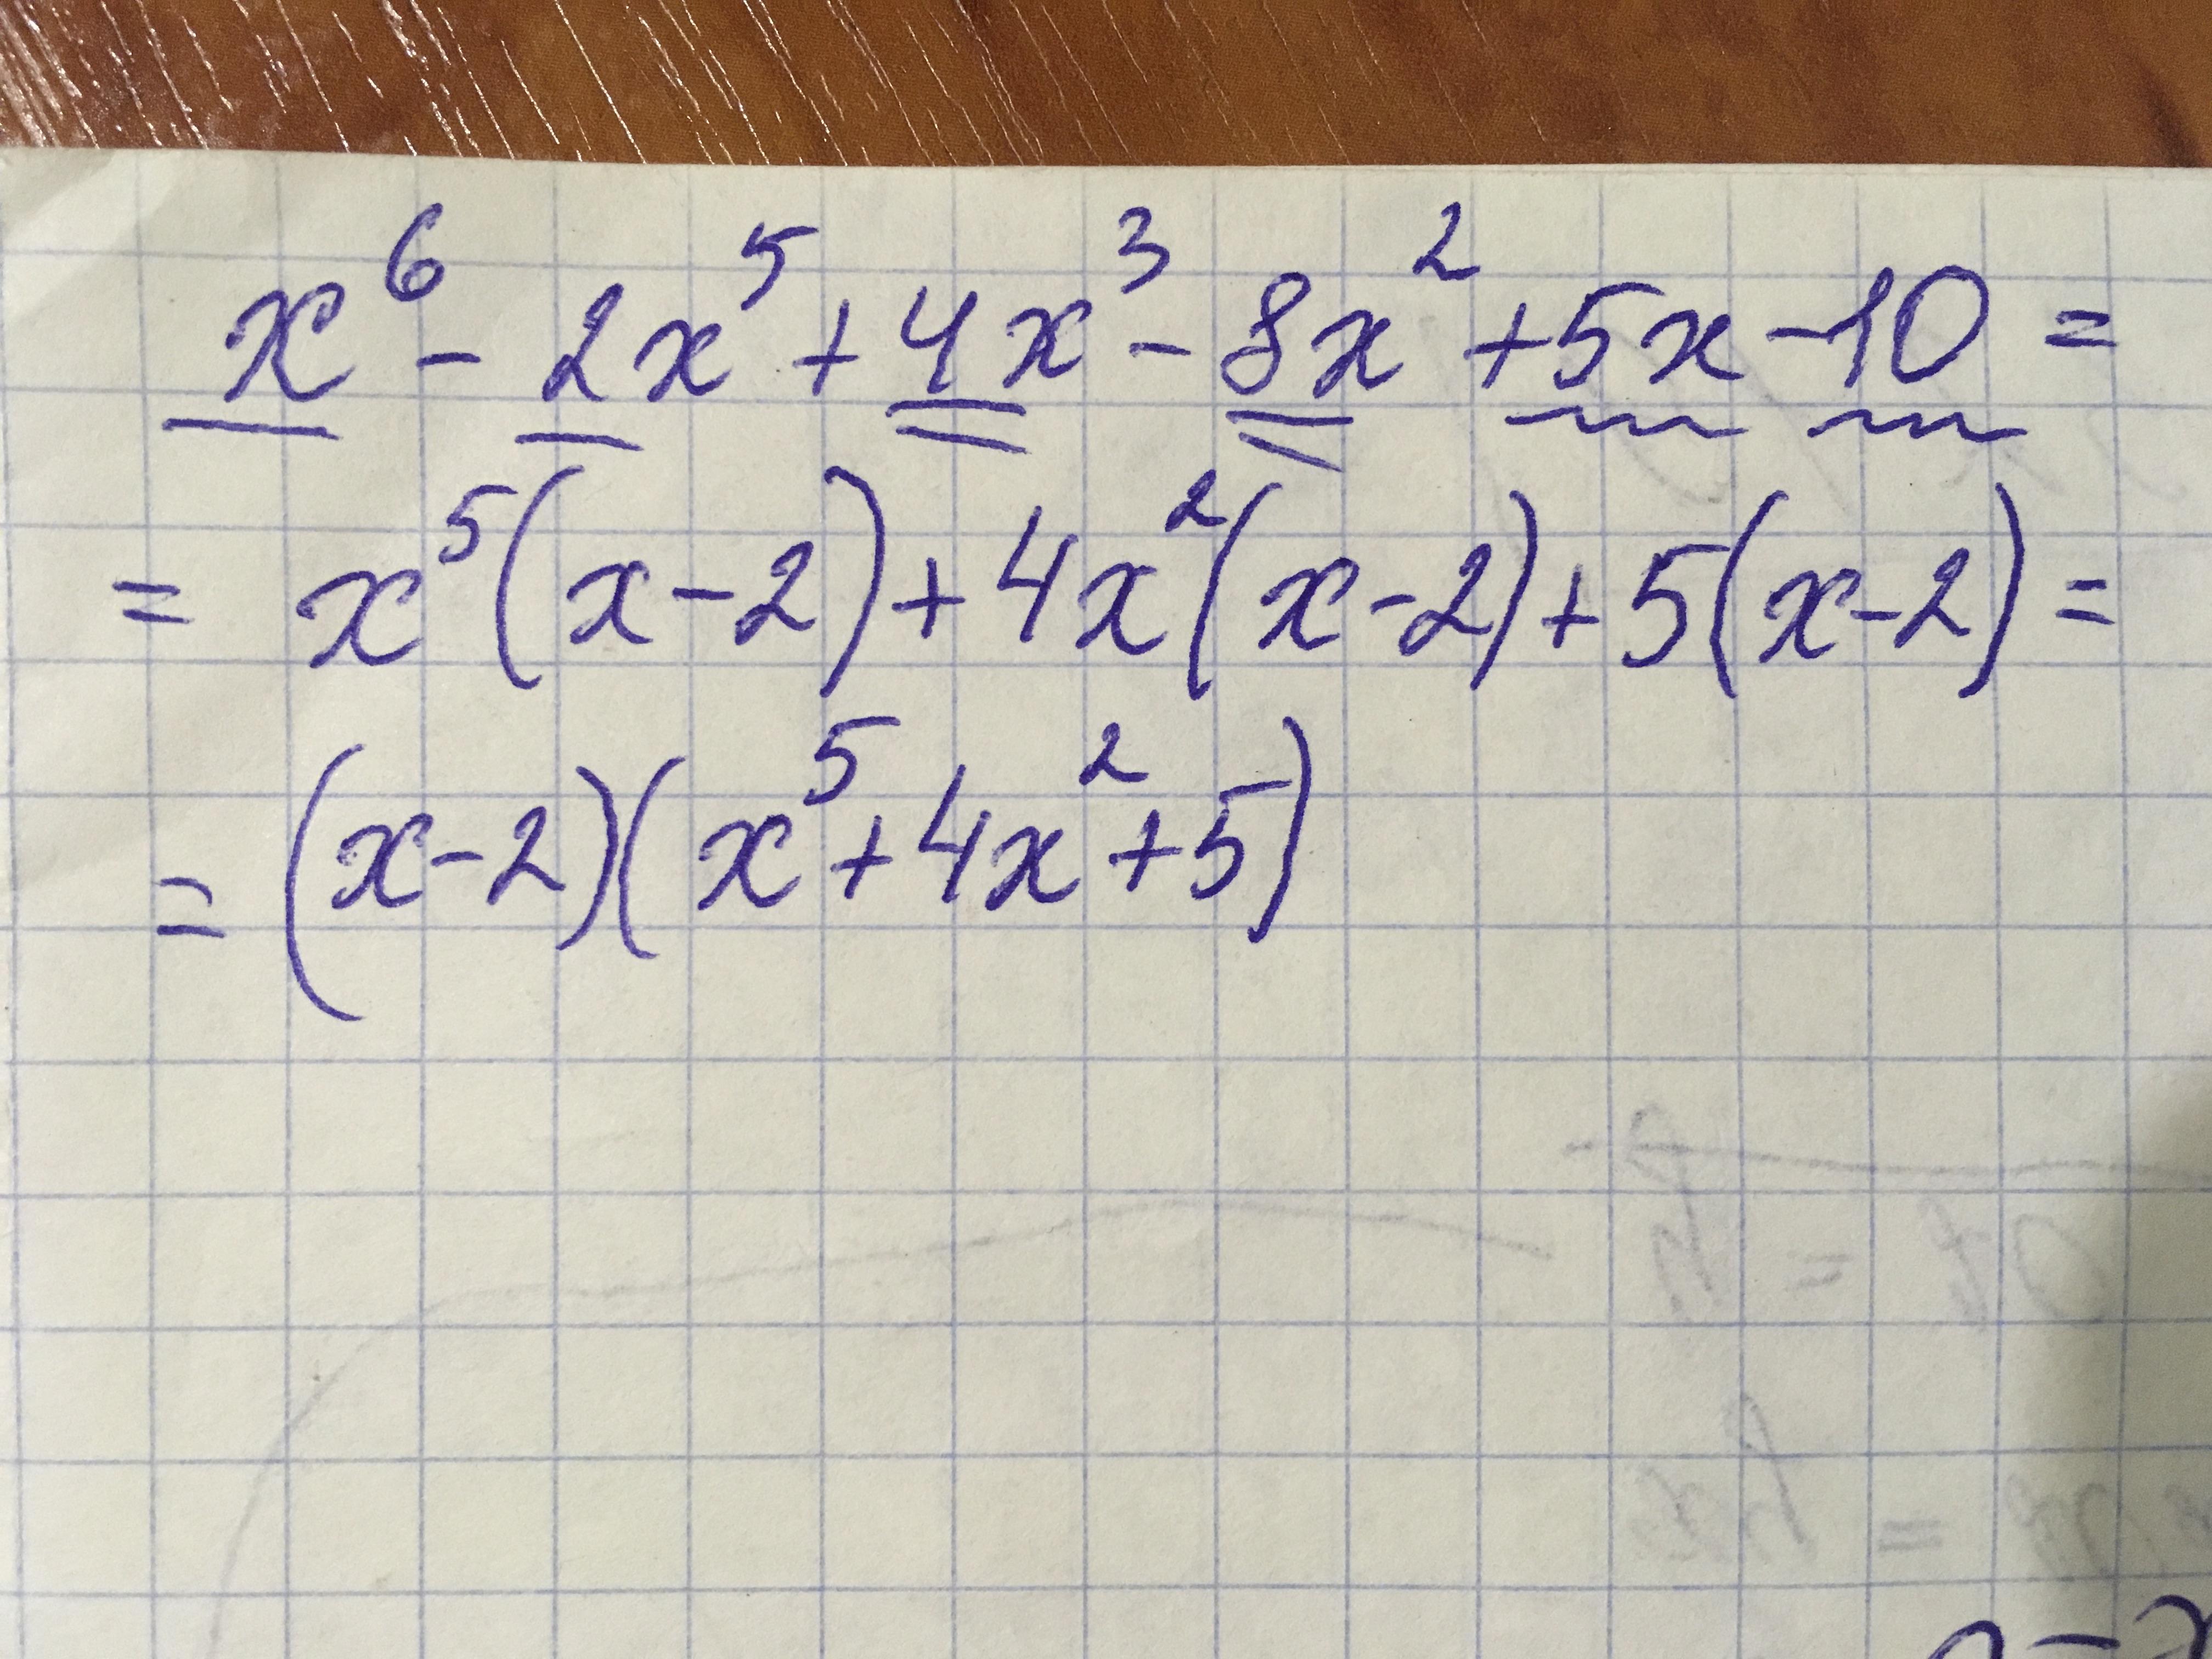 x⁶ - 2x⁵ + 4x³ - 8x² + 5x - 10 =
= x⁵(x-2) + 4x²(x-2) + 5(x-2) =
= (x-2)(x⁵ + 4x² + 5)